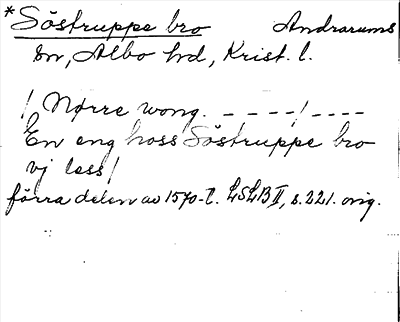 *Söstruppe bro Andrarums
sn, Albo hd, Krist. l.
/ Nørre wong. _ _ _ _ / _ _ _ _
En eng hoss Söstruppe bro
vj less /
förra delen av 1570-t. LSLB II, s. 221. orig.